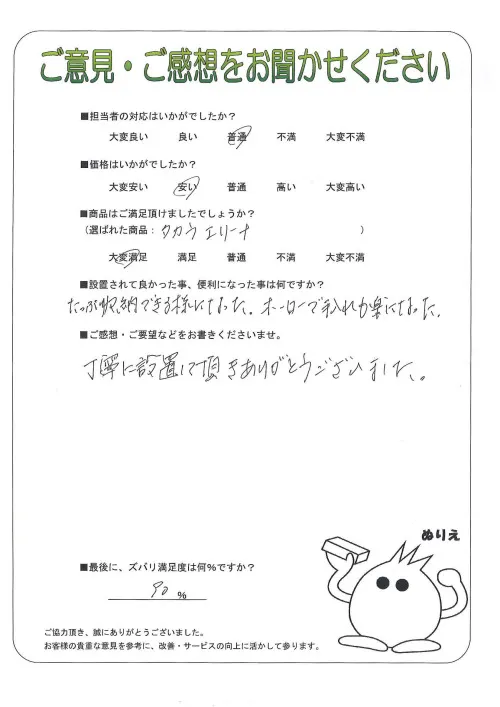 ご意見・ご感想をお聞かせください
■担当者の対応はいかがでしたか?
大変良い 良い 普通 不満 大変不満
■価格はいかがでしたか?
大変安い 安い 普通 高い 大変高い
■商品はご満足頂けましたでしょうか?
(選ばれた商品: タカラ エリーナ )
大変満足 満足 普通 不満 大変不満
■設置されて良かった事、便利になった事は何ですか?
たっぷり収納できる様になった。ホーローで手入れが楽になった。
■ご感想・ご要望などをお書きくださいませ。
丁寧に設置して頂きありがとうございました。
ぬりえ
■最後に、ズバリ満足度は何%ですか?
90 %
ご協力頂き、誠にありがとうございました。
お客様の貴重な意見を参考に、改善・サービスの向上に活かして参ります。